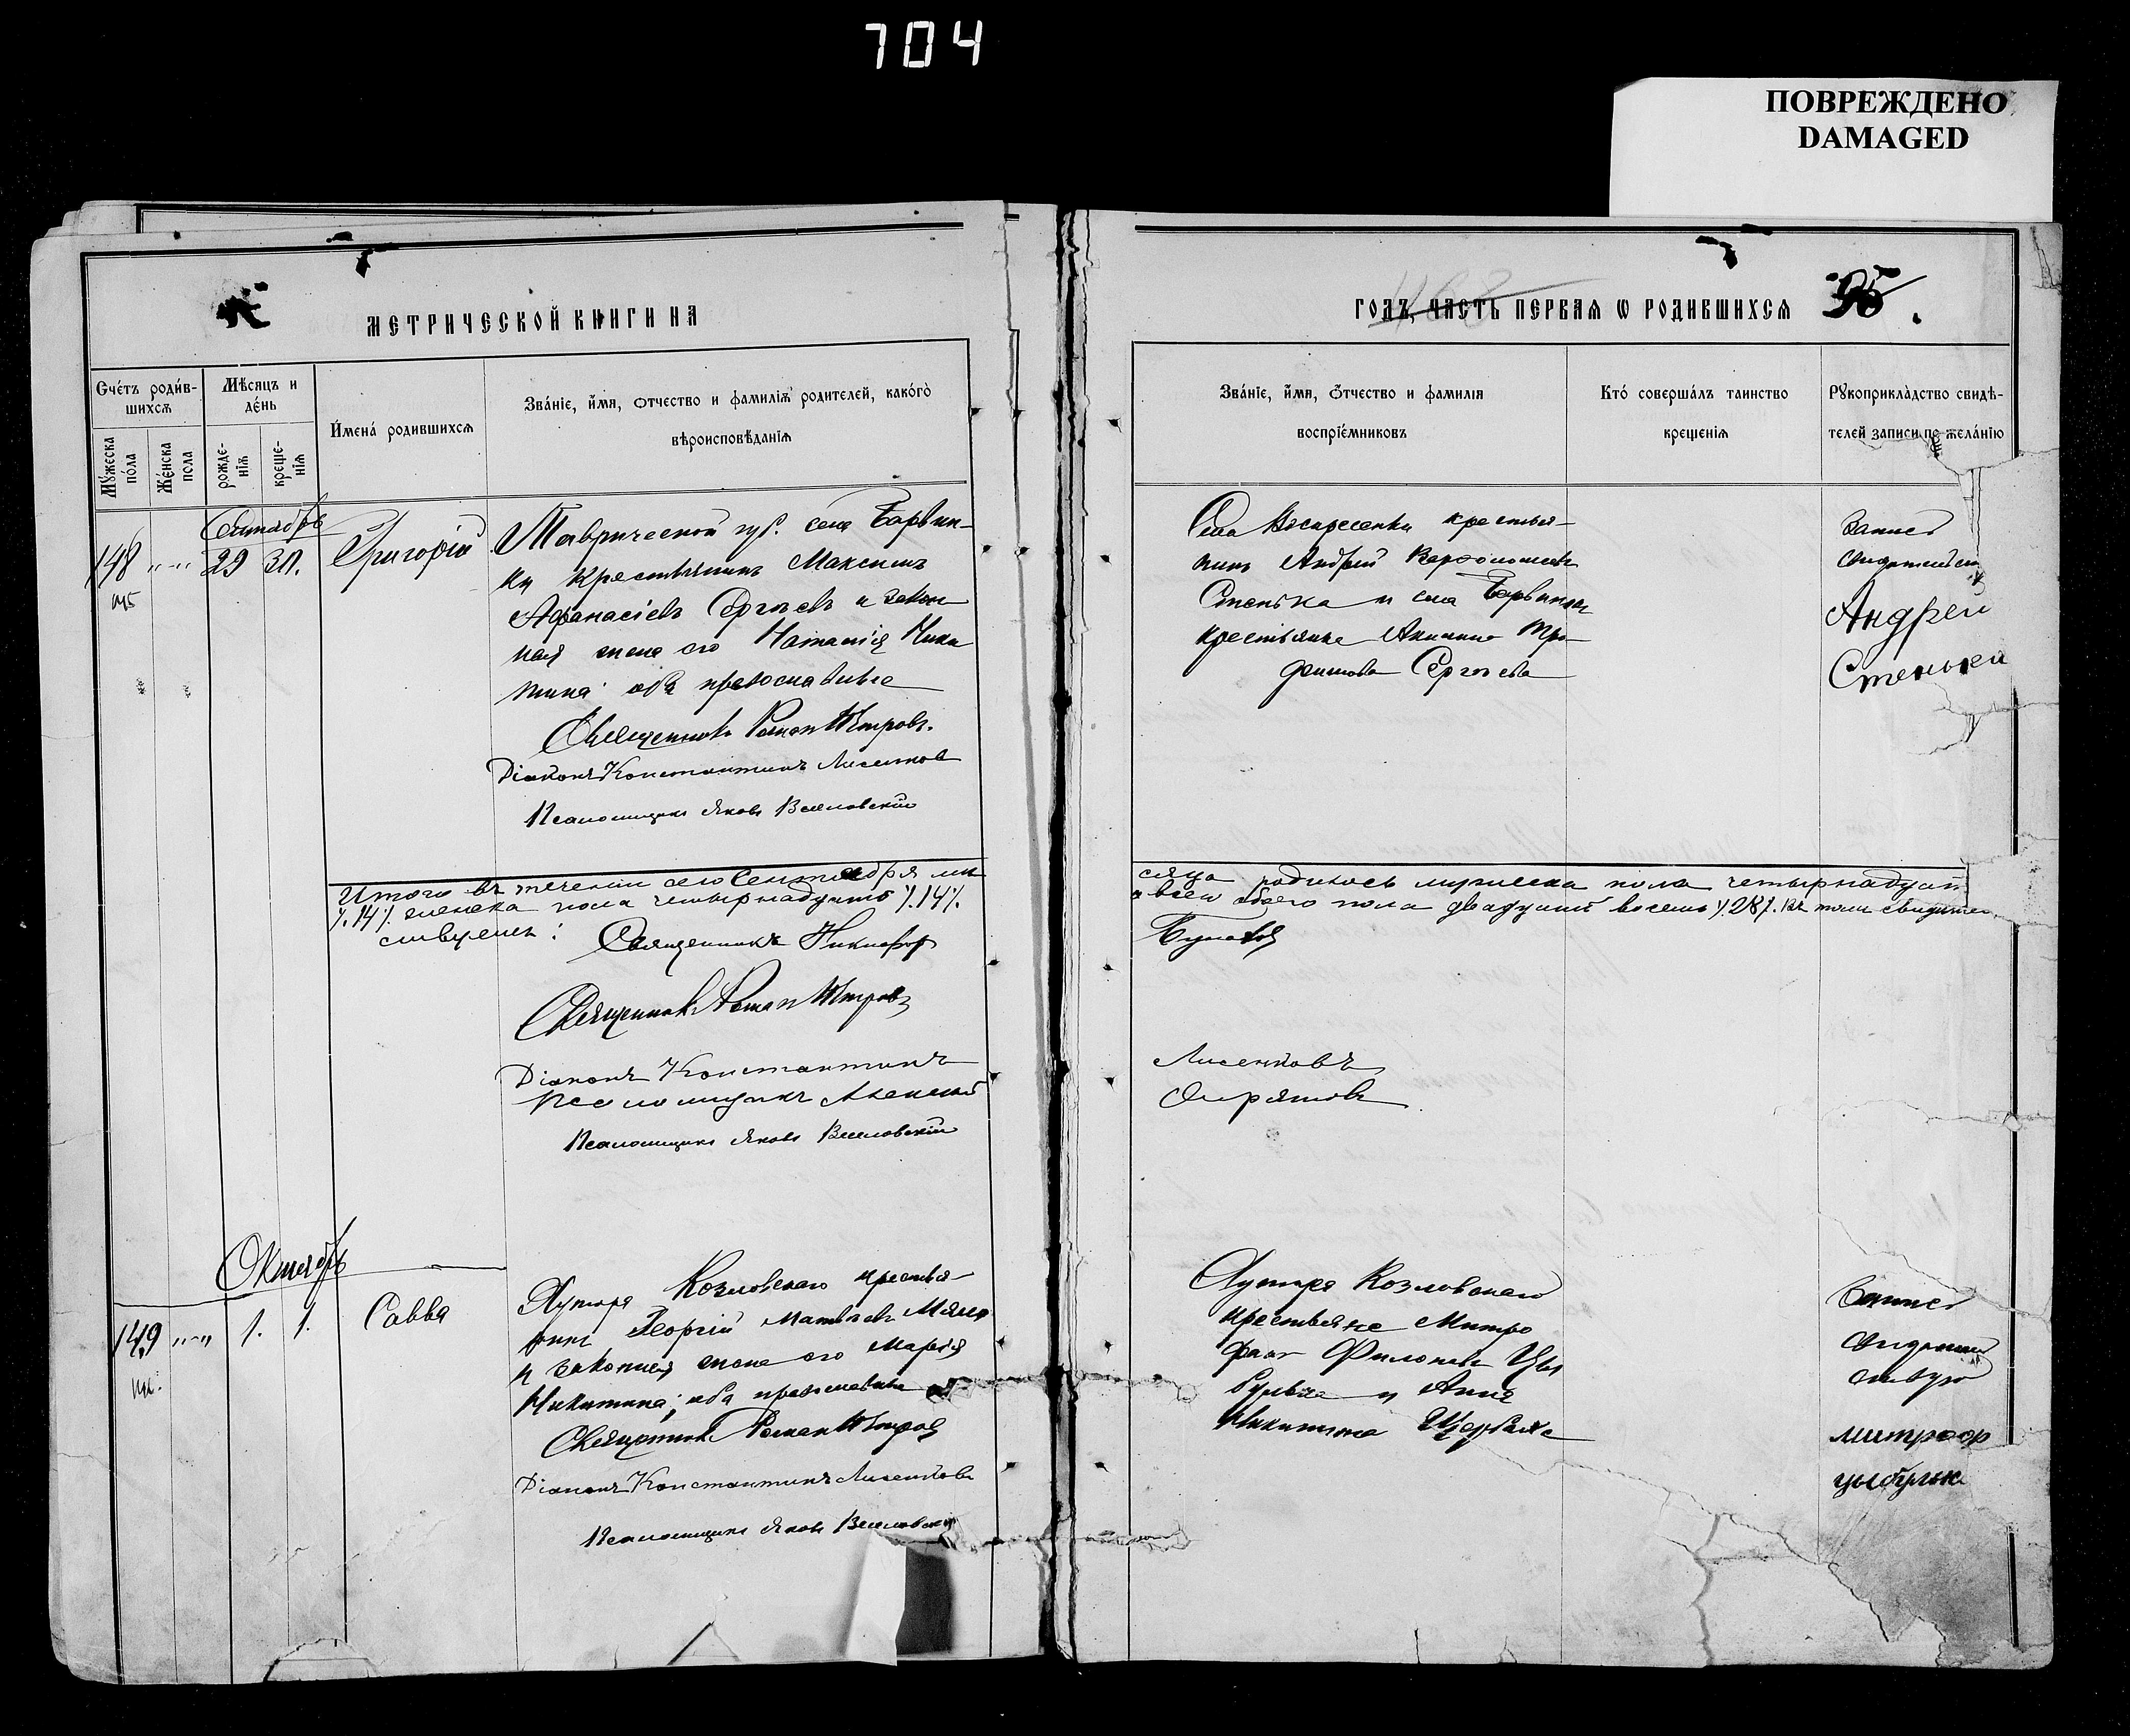 704
ПОВРЕЖДЕНО
DAMAGED
МЕТРИЧЕСКОЙ КНИГИ НА
ГОДЪ, ЧАСТЬ ПЕРВАЯ Ѡ РОДИВШИХСЯ
95
Счéтъ роди́в-
шихсѧ
Мѣ́сяцъ и
де́нь
Мꙋ́жеска
по́ла
Же́нска
пола
рожде-
нїѧ
креще-
нїѧ
И́мена́ родившихсѧ
Зва́нїе, и́мѧ, ѻтчество и фамилїѧ родителей, како́гѡ
вѣроисповѣ́данїѧ
Зва́нїе, и́мѧ, ѻ́тчество и фамилїѧ
воспрїе́мниковъ
Кто́ соверша́лъ таинство
крещенїѧ
Рꙋкоприкла́дство свидѣ-
телей записи по жела́нїю
Сентябрь
148 „ „ 29 30. Григорій
Таврической губ. села Барвин-
ки крестьянинъ Максимъ
Афанасіевъ Сергѣевъ и закон
ная жена его Наталія Ники
тина оба православные
Священникъ Роман Петровъ.
Діаконъ Константинъ Лисенков
Псаломщикъ Яковъ Веселовскій
Села Воскресенки крестья-
нинъ Андрей Варфоломеевъ
Стенька и села Барвинки
крестьянка Акилина Тро-
фимова Сергѣева
Запис
Андрей
Стенька
Итого въ теченіи сего Сентября мѣ
сяца родилось мужеска пола четырнадцать
٪14٪ женска пола четырнадцать ٪14٪.
а всего обоего пола двадцать восемь ٪28٪. Въ томъ свидѣтел
ствуемъ:
Священникъ Никифор
Булатов
Священникъ Роман Петровъ
Діаконъ Константинъ
Лисенковъ
Псаломщикъ Алексѣй
Псаломщикъ Яковъ Веселовскій
Октябрь
149 „ „ 1. 1. Савва
Хутора Козловскаго крестья-
нинъ Георгій Матвѣевъ
и законная жена его Марія
Никитина; оба православные
Священникъ Роман Петров
Діаконъ Константинъ Лисенковъ
Псаломщикъ Яковъ Веселовский
Хутора Козловскаго
крестьяне Митро
фанъ Филоновъ Цы
булька и Анна
Никитина Щербакова
Запись
митрофан
цыбулька